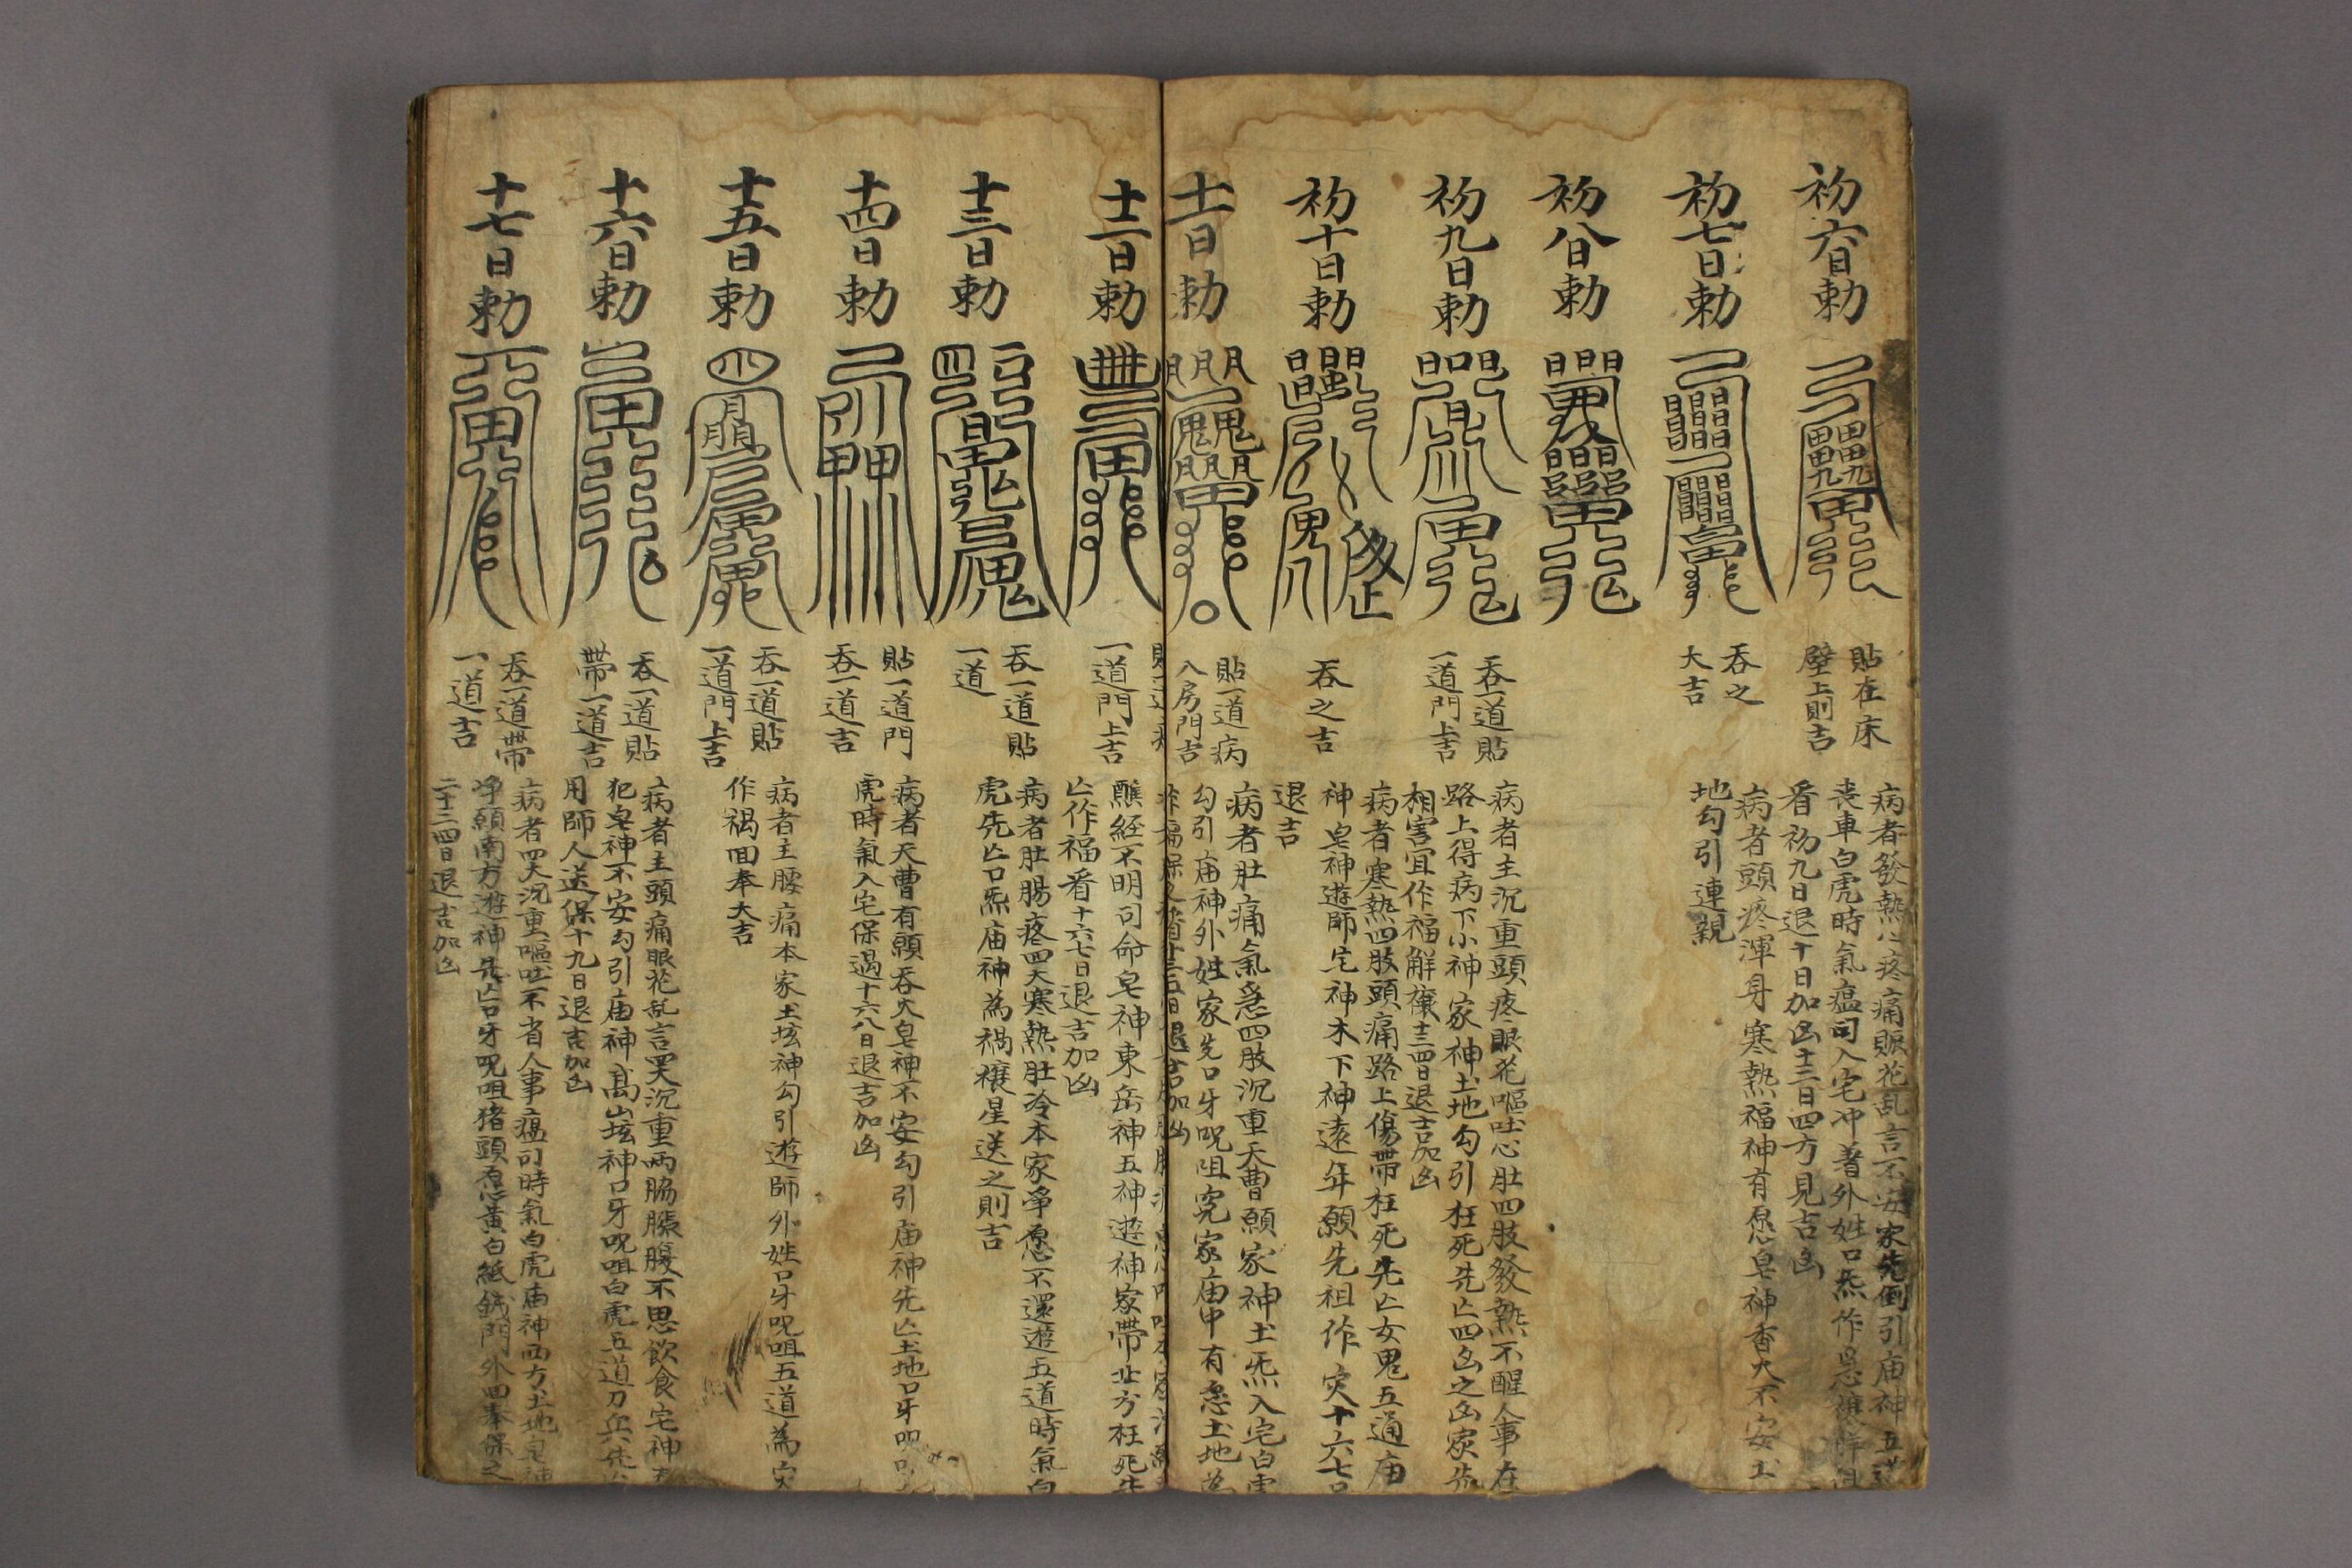 初六日勅
貼在床
壁上則吉
病者發熱心疼痛眼花乱言不安家先倒引庙神五
丧車白虎時氣瘟司入宅冲著外姓口炁作
看初九日退十日加凶十三日四方見吉凶
初七日勅
吞之
大吉
病者頭疼渾身寒熱福神有愿皂神香火不安土
地勾引連親
初八日勅
初九日勅
吞一道貼
一道門上吉
病者主沉重頭疼眼花嘔吐心肚四肢發熱不醒人事在
路上得病下小神家神土地勾引枉死先亡四凶之凶家先
相害宜作福解禳十三四日退吉加凶
初十日勅
吞之吉
病者寒熱四肢頭痛路上傷帶枉死先亡女鬼五通庙
神皂神遊師宅神木下神遠年願先祖作灾十六七日
退吉
十一日勅
貼一道病
入房門吉
病者肚痛氣急四肢沉重天曹願家神土炁入宅白虎
勾引庙神外姓家先口牙呪咀究家庙中有愿土地為
十二日勅
一道門上吉
醮経不明司命皂神東岳神五神遊神家帶北方枉死先
亡作福看十六七日退吉加凶
十三日勅
吞一道貼
一道
病者肚腸疼四大寒熱肚冷本家爭愿不還遊五道時氣白
虎先亡口炁庙神為禍禳星送之則吉
十四日勅
貼一道門
吞一道吉
病者天曹有願吞火皂神不安勾引庙神先亡土地口牙呪
虎時氣入宅保過十六八日退吉加凶
十五日勅
吞一道貼
一道門上吉
病者主腰痛本家土垓神勾引遊師外姓口牙呪咀五道為灾
作禍回奉大吉
十六日勅
吞一道貼
帶一道吉
病者主頭痛眼花乱言四大沉重両脇脹腹不思飲食宅神
犯皂神不安勾引庙神高山垓神口牙呪咀白虎五道刀兵先
用師人送保十九日退吉加凶
十七日勅
吞一道帶
一道吉
病者四大沉重嘔吐不省人事瘟司時氣白虎庙神西方土地皂神
净願南方遊神先亡口牙呪咀猪頭愿黃白紙錢門外回奉保之
二十三四日退吉加凶